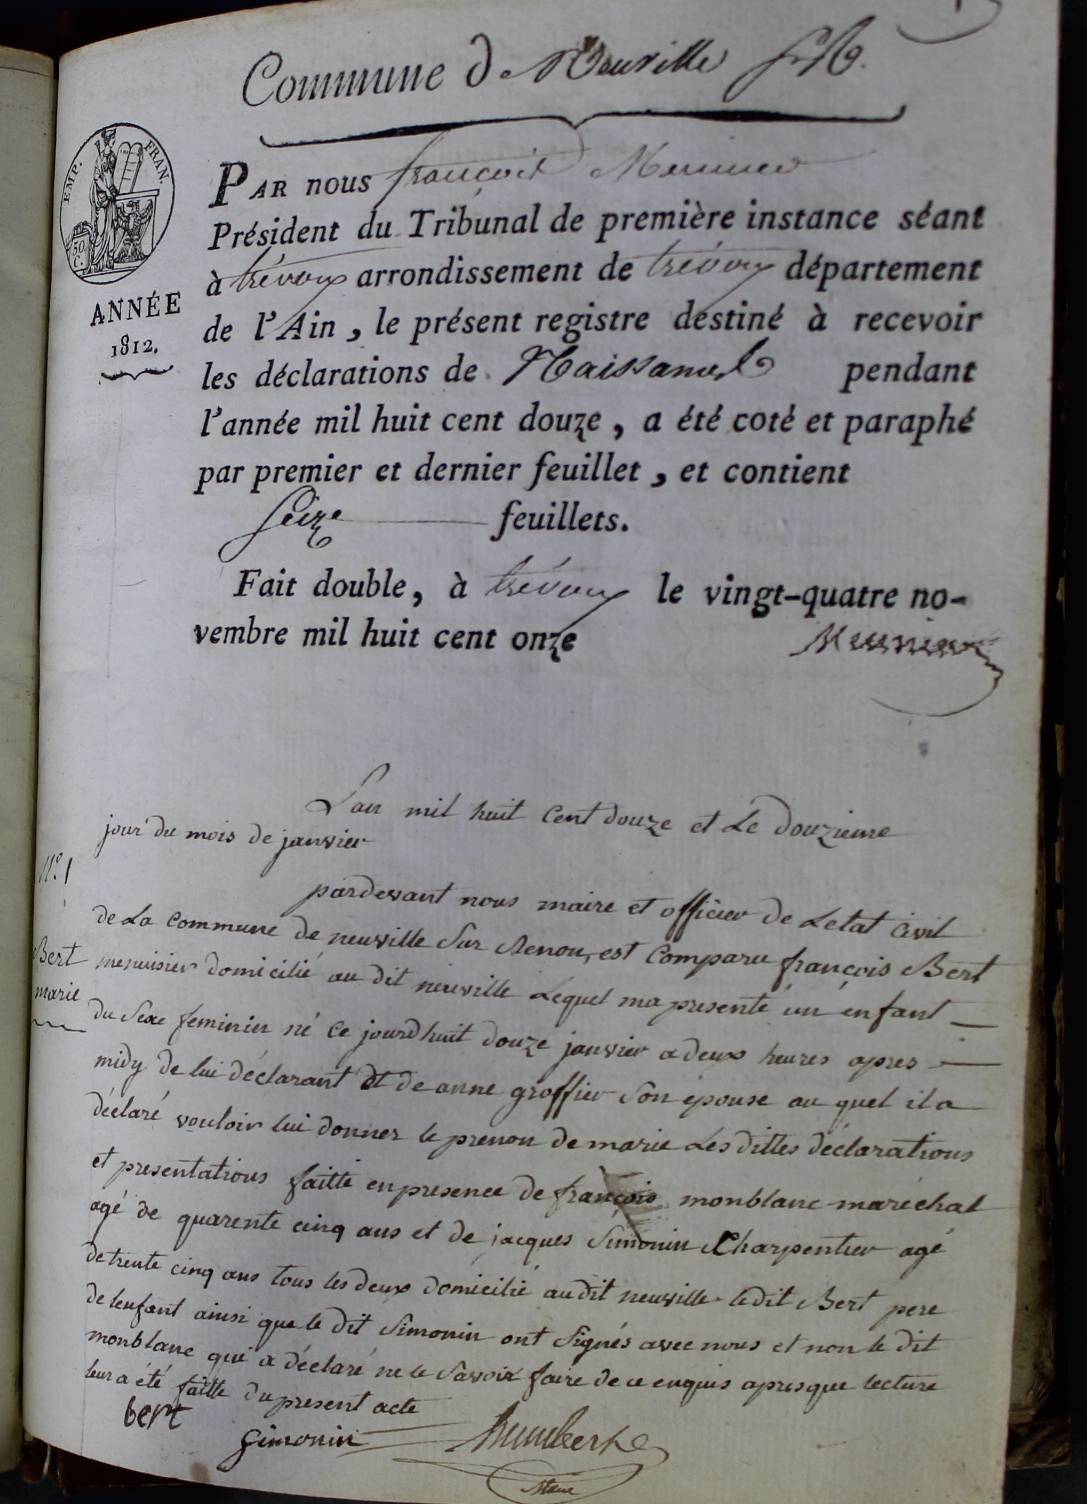 Commune d Neuville
EMP. FRAN.
50 C.
ANNÉE
1812.
PAR nous françois Meunier
Président du Tribunal de première instance séant
à trévoux arrondissement de trévoux département
de l'Ain, le présent registre destiné à recevoir
les déclarations de Naissances pendant
l'année mil huit cent douze, a été coté et paraphé
par premier et dernier feuillet, et contient
Seize feuillets.
Fait double, à trévoux le vingt-quatre no-
vembre mil huit cent onze
Meunier
L'an mil huit cent douze et Le douzieme
jour du mois de janvier
N.° 1
Bert
marie
pardevant nous maire et officier de Letat civil
de La commune de neuville Sur Renon, est comparu françois Bert
menuisier domicilié au dit neuville Lequel ma presenté un enfant
du Sexe feminin né ce jourdhuit douze janvier a deux heures apres
midy de lui déclarant et de anne groffier Son épouse au quel il a
déclaré vouloir lui donner le prenon de marie Les dittes déclarations
et presentations faitte en presence de françois monblanc maréchal
agé de quarente cinq ans et de jacques Simonin Charpentier agé
de trente cinq ans tous les deux domicilié au dit neuville ledit Bert pere
de lenfant ainsi que le dit Simonin ont Signés avec nous et non le dit
monblanc qui a déclaré ne le Savoir faire de ce enquis apres que lecture
leur a été faitte du present acte
bert
Simonin
Humbert
Maire